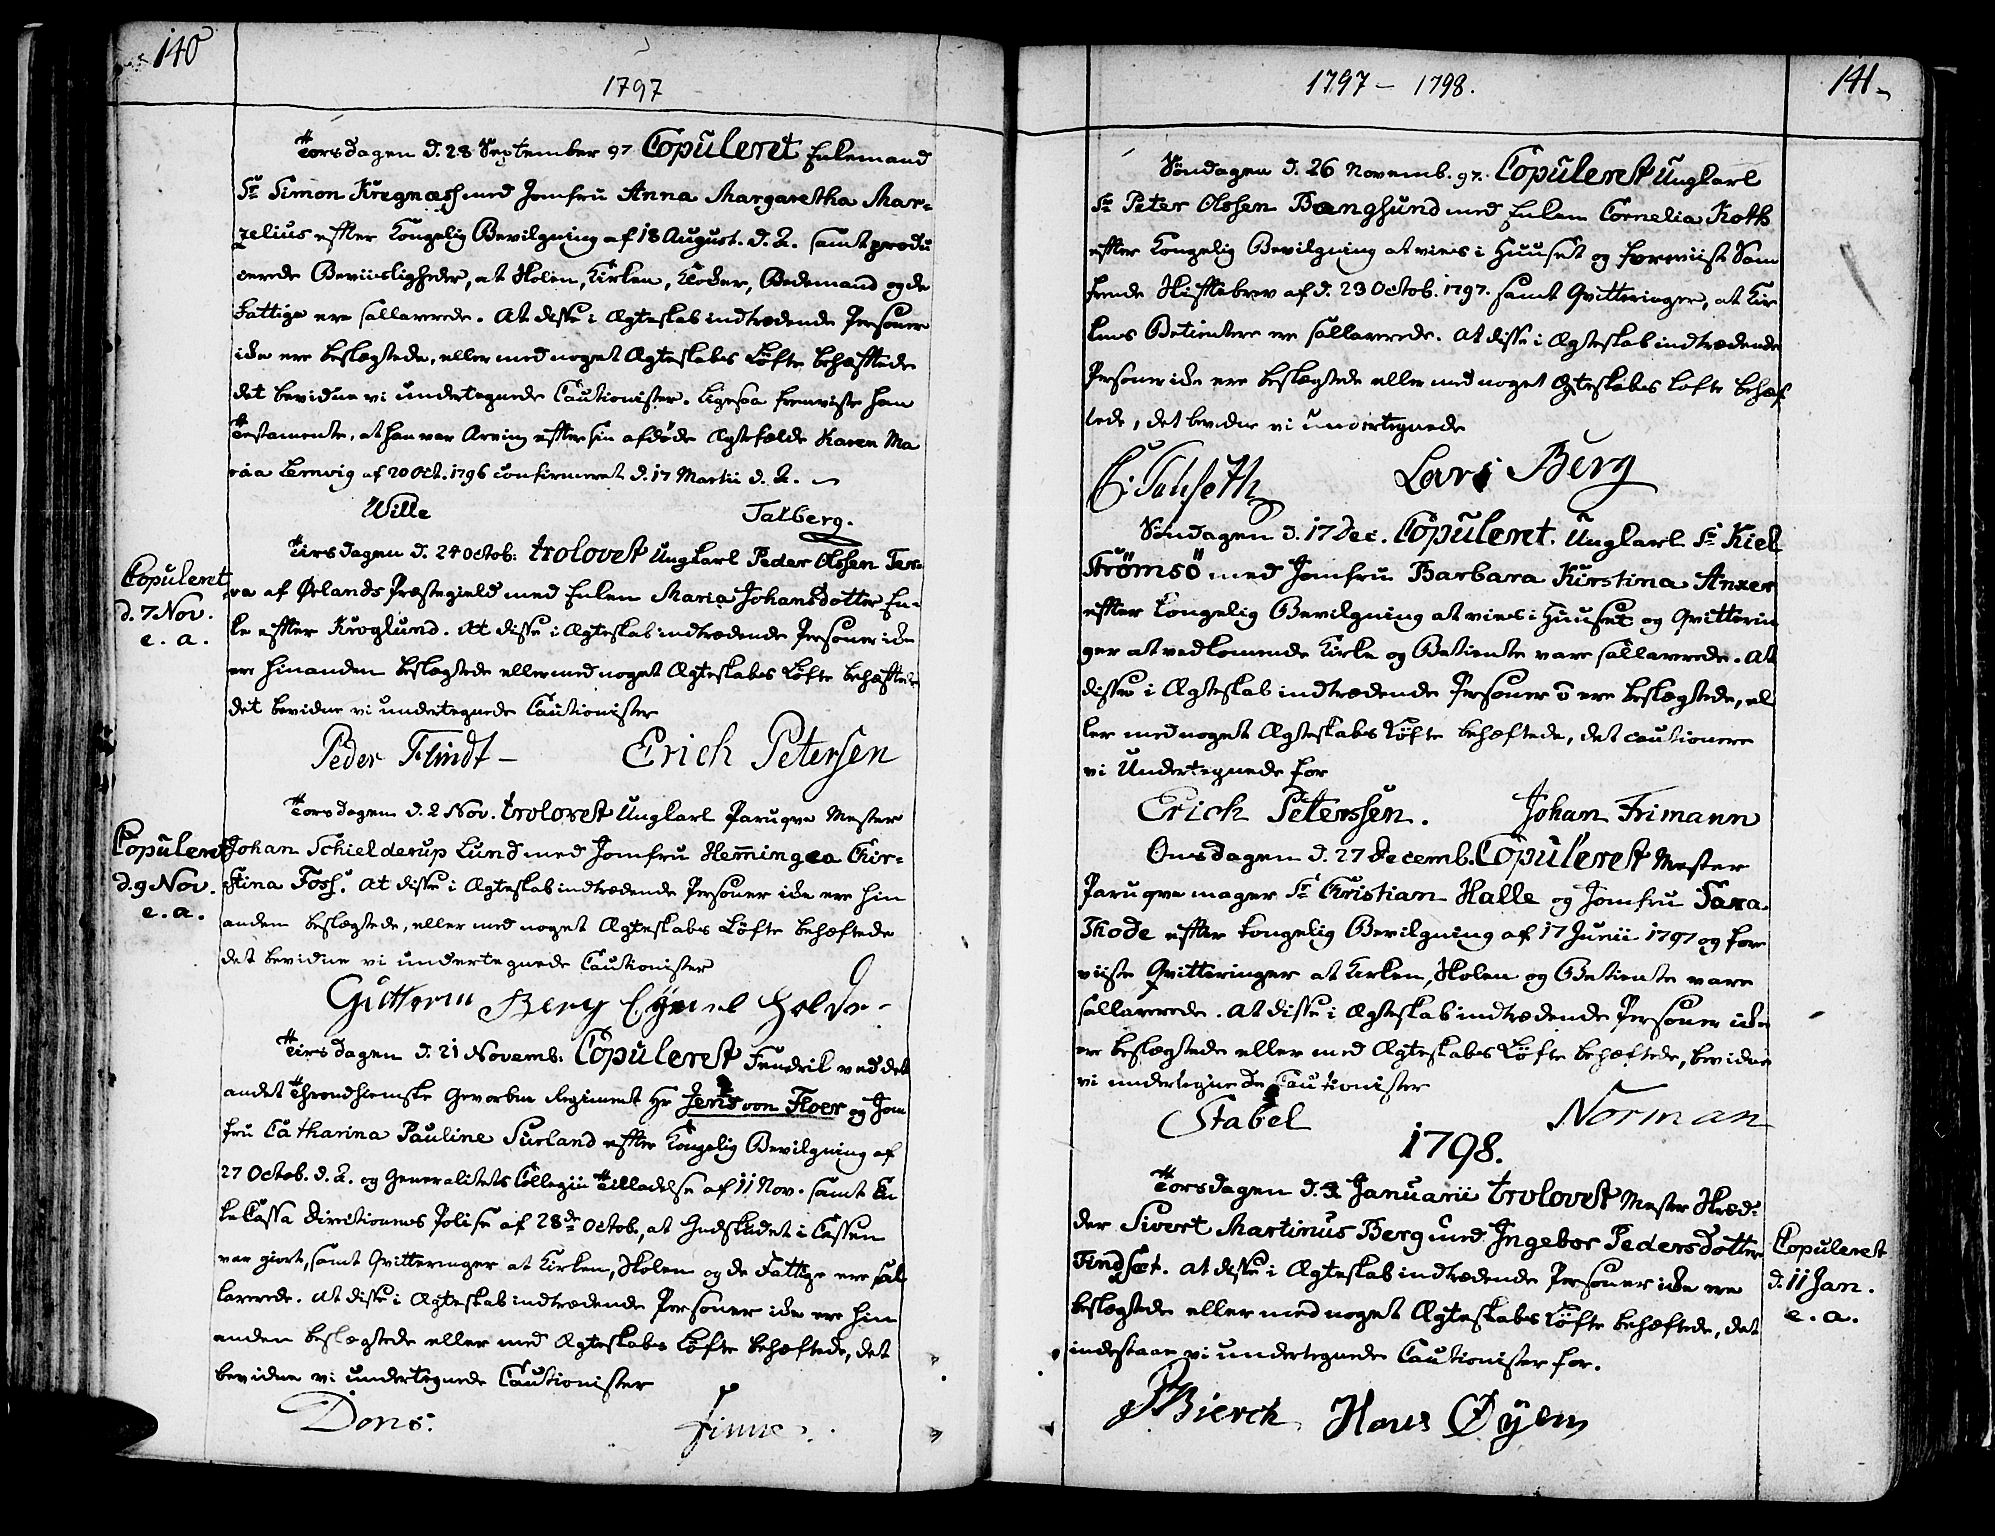 140
1797
Torsdagen d. 28 September 97 Copuleret Enkemand
Sr Simon Kregness med Jomfru Anna Margaretha Mar-
zelius effter Kongelig Bevilgning af 18 August. d. A. samt produ
cerede Beviisligheder, at Skolen, Kirken, Klocker, Bedemand og de
Fattige ere sallarerede. At disse i Ægteskab indtrædende Personer
icke ere beslægtede, eller med noget Ægteskabs Løfte behæfftede
det bevidne vi undertegnede Cautionister. Ligesaa fremviste han
Testamente, at han var Arving effter sin afdøde Ægtefælde Karen Ma
ria Lemvig af 20 Oct. 1796 confirmeret d. 17 Martii d. A.
Wille Talberg.
Copuleret
d. 7 Nov.
e. a.
Tirsdagen d. 24 Octob: trolovest Ungkarl Peder Olssen Ter-
ra af Ørlands Præstegield med Enken Maria Johansdotter En-
ke effter Kroglund. At disse i Ægteskab indtrædende Personer icke
ere hinanden beslægtede eller med noget Ægteskabs Løfte behæfftede
det bevidne vi undertegnede Cautionister
Peder Flindt - Erich Petersen
Copuleret
d. 9 Nov.
e. a.
Torsdagen d. 2 Nov. trolovest Ungkarl Paruqve Mester
Johan Schielderup Lund med Jomfru Hemmingea Chir-
stina Foss. At disse i Ægteskab indtrædende Personer icke ere hin
anden beslægtede, eller med noget Ægteskabs Løfte behæftede
det bevidne vi undertegnede Cautionister
Guttorm Berg
Tirsdagen d. 21 Novemb: Copulerest Fendrik ved det
andet Throndhiemske Gevorbne Regiment Hr Jens von Floer og Jom
fru Catharina Pauline Surland effter Kongelig Bevilgning af
27 Octob. d. A. og Generalitets Collegii Tilladelse af 11 Nov. samt En
ke Cassa Directionens Polise af 28de Octob, at Indskudet i Cassen
var giort, samt Qvitteringer at Kirken, Skolen og de Fattige ere sal
larerede. At disse i Ægteskab indtrædende Personer icke ere hin
anden beslægtede eller med Ægteskabs Løfte behæftede, det
bevidne vi undertegnede Cautionister
Dons. Finne
1797 - 1798.
141
Søndagen d. 26 Novemb. 97. Copulerest Ungkarl
Sr Peter Olssen Bangsund med Enken Cornelia Koth
effter Kongelig Bevilgning at vies i Huuset og foreviist Sam
frende Skifftebrev af d. 23 Octob. 1797. samt Qvitteringer, at Kir
kens Betientere ere sallarerede. At disse i Ægteskab indtrædende
Personer icke ere beslægtede eller med noget Ægteskabs Løfte behæf
tede, det bevidne vi undertegnede
Lars Berg
Søndagen d. 17 Dec. Copuleret. Ungkarl Sr Kiel
Strömsö med Jomfru Barbara Kirstina Anzer
effter Kongelig Bevilgning at vies i Huuset og Qvitterin
ger at vedkomende Kirke og Betiente vare sallarerede. At
disse i Ægteskab indtrædende Personer ō ere beslægtede, el
ler med noget Ægteskabs Løfte behæftede, det cautionere
vi Undertegnede for
Erich Peterssen. Johan Frimann
Onsdagen d. 27 Decemb. Copulerest Mester
Paruqvemager Sr Christian Halle og Jomfru Sara
Thode effter kongelig Bevilgning af 17 Junii 1797 og fore
viiste Qvitteringer at Kirken, Skolen og Betiente vare
sallarerede. At disse i Ægteskab indtrædende Personer icke
ere beslægtede eller med Ægteskabs Løfte behæftede, bevidne
vi undertegnede Cautionister
Stabel Norman
1798.
Torsdagen d. 4 Januarii trolovest Mester Skræd-
der Sivert Martinus Berg med Ingebor Pedersdotter
Findsæt. At disse i Ægteskab indtrædende Personer icke ere
beslægtede eller med noget Ægteskabs Løfte behæftede, det
indestaae vi undertegnede Cautionister for.
Copulerest
d. 11 Jan.
e. a.
Bierck Hans Øyen